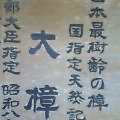 日本最樹齢の樟
国指定天然記
大樟
部大臣指定 昭和八